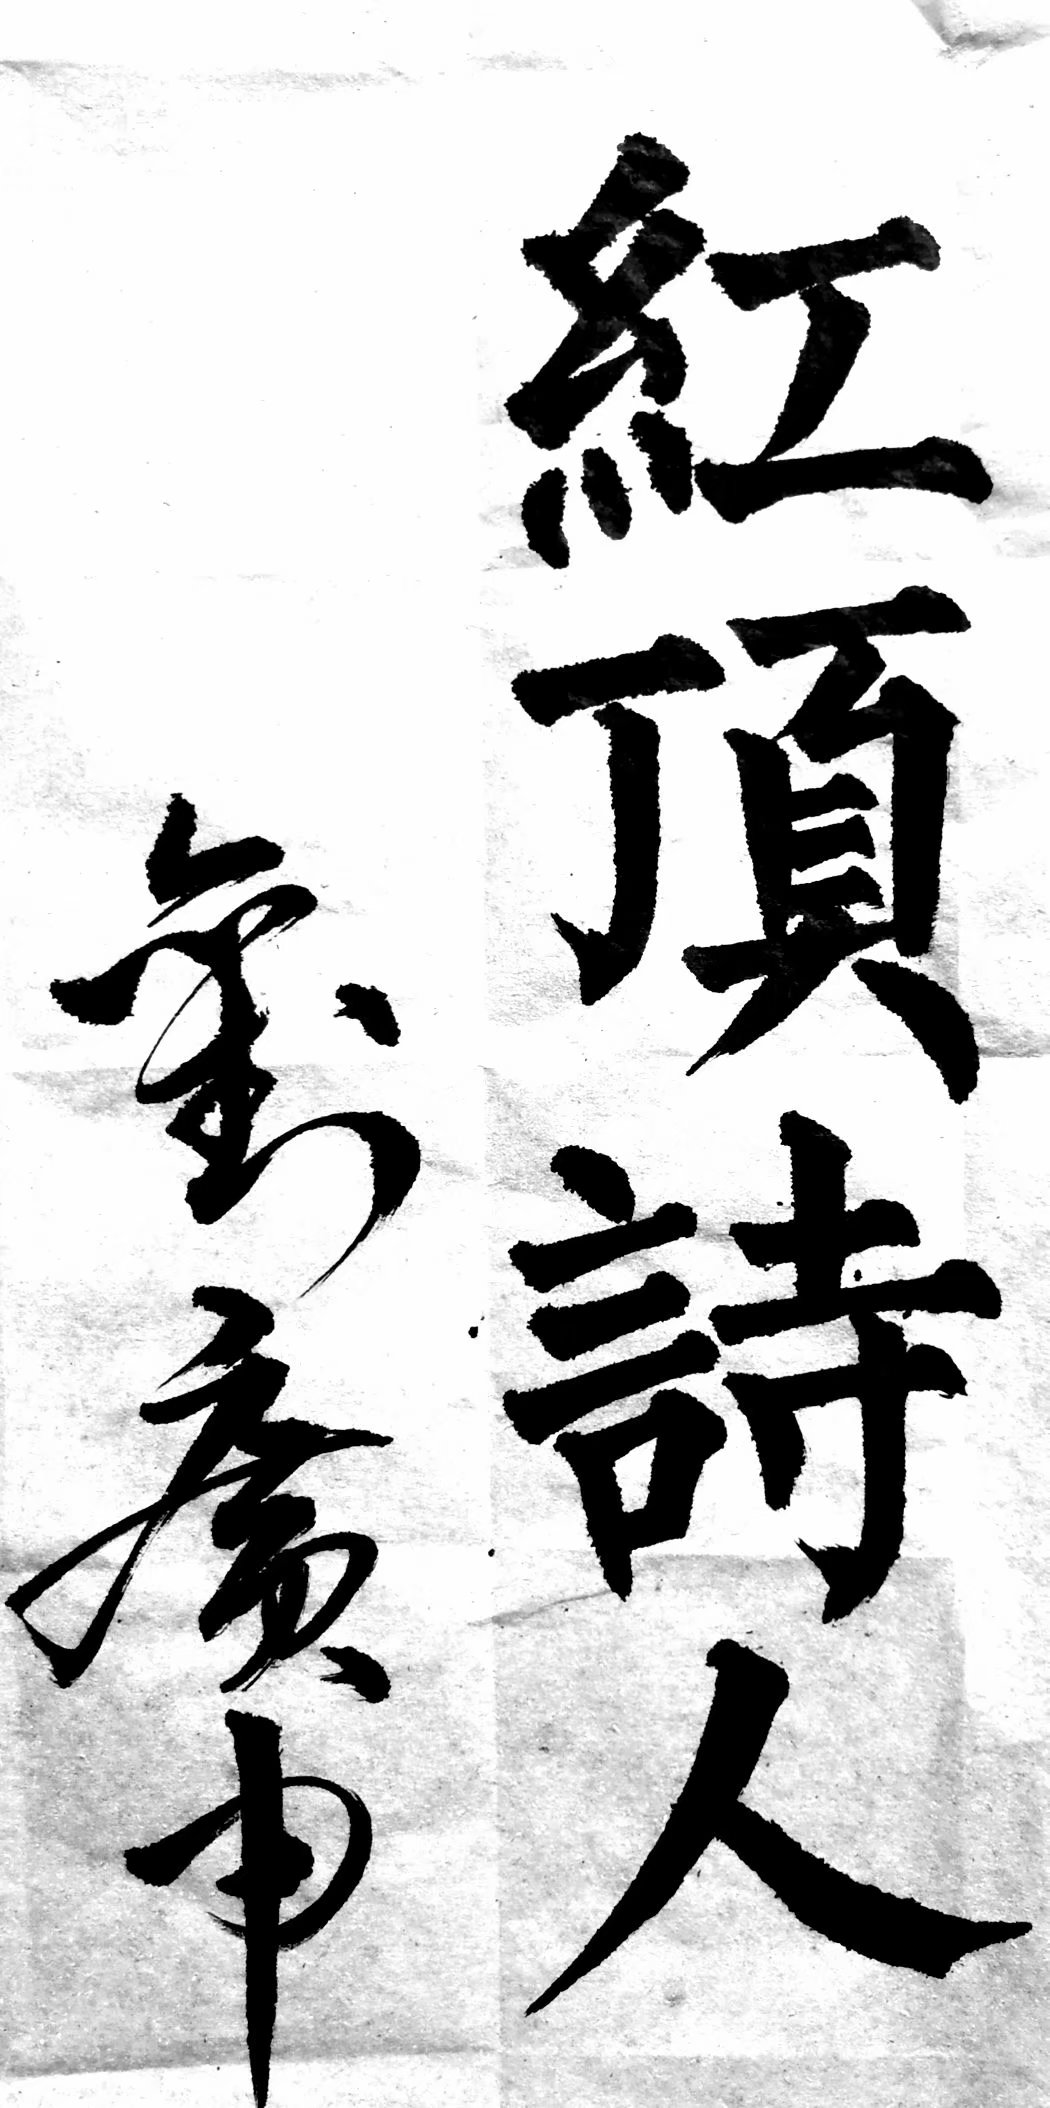 紅頂詩人
劉廣申